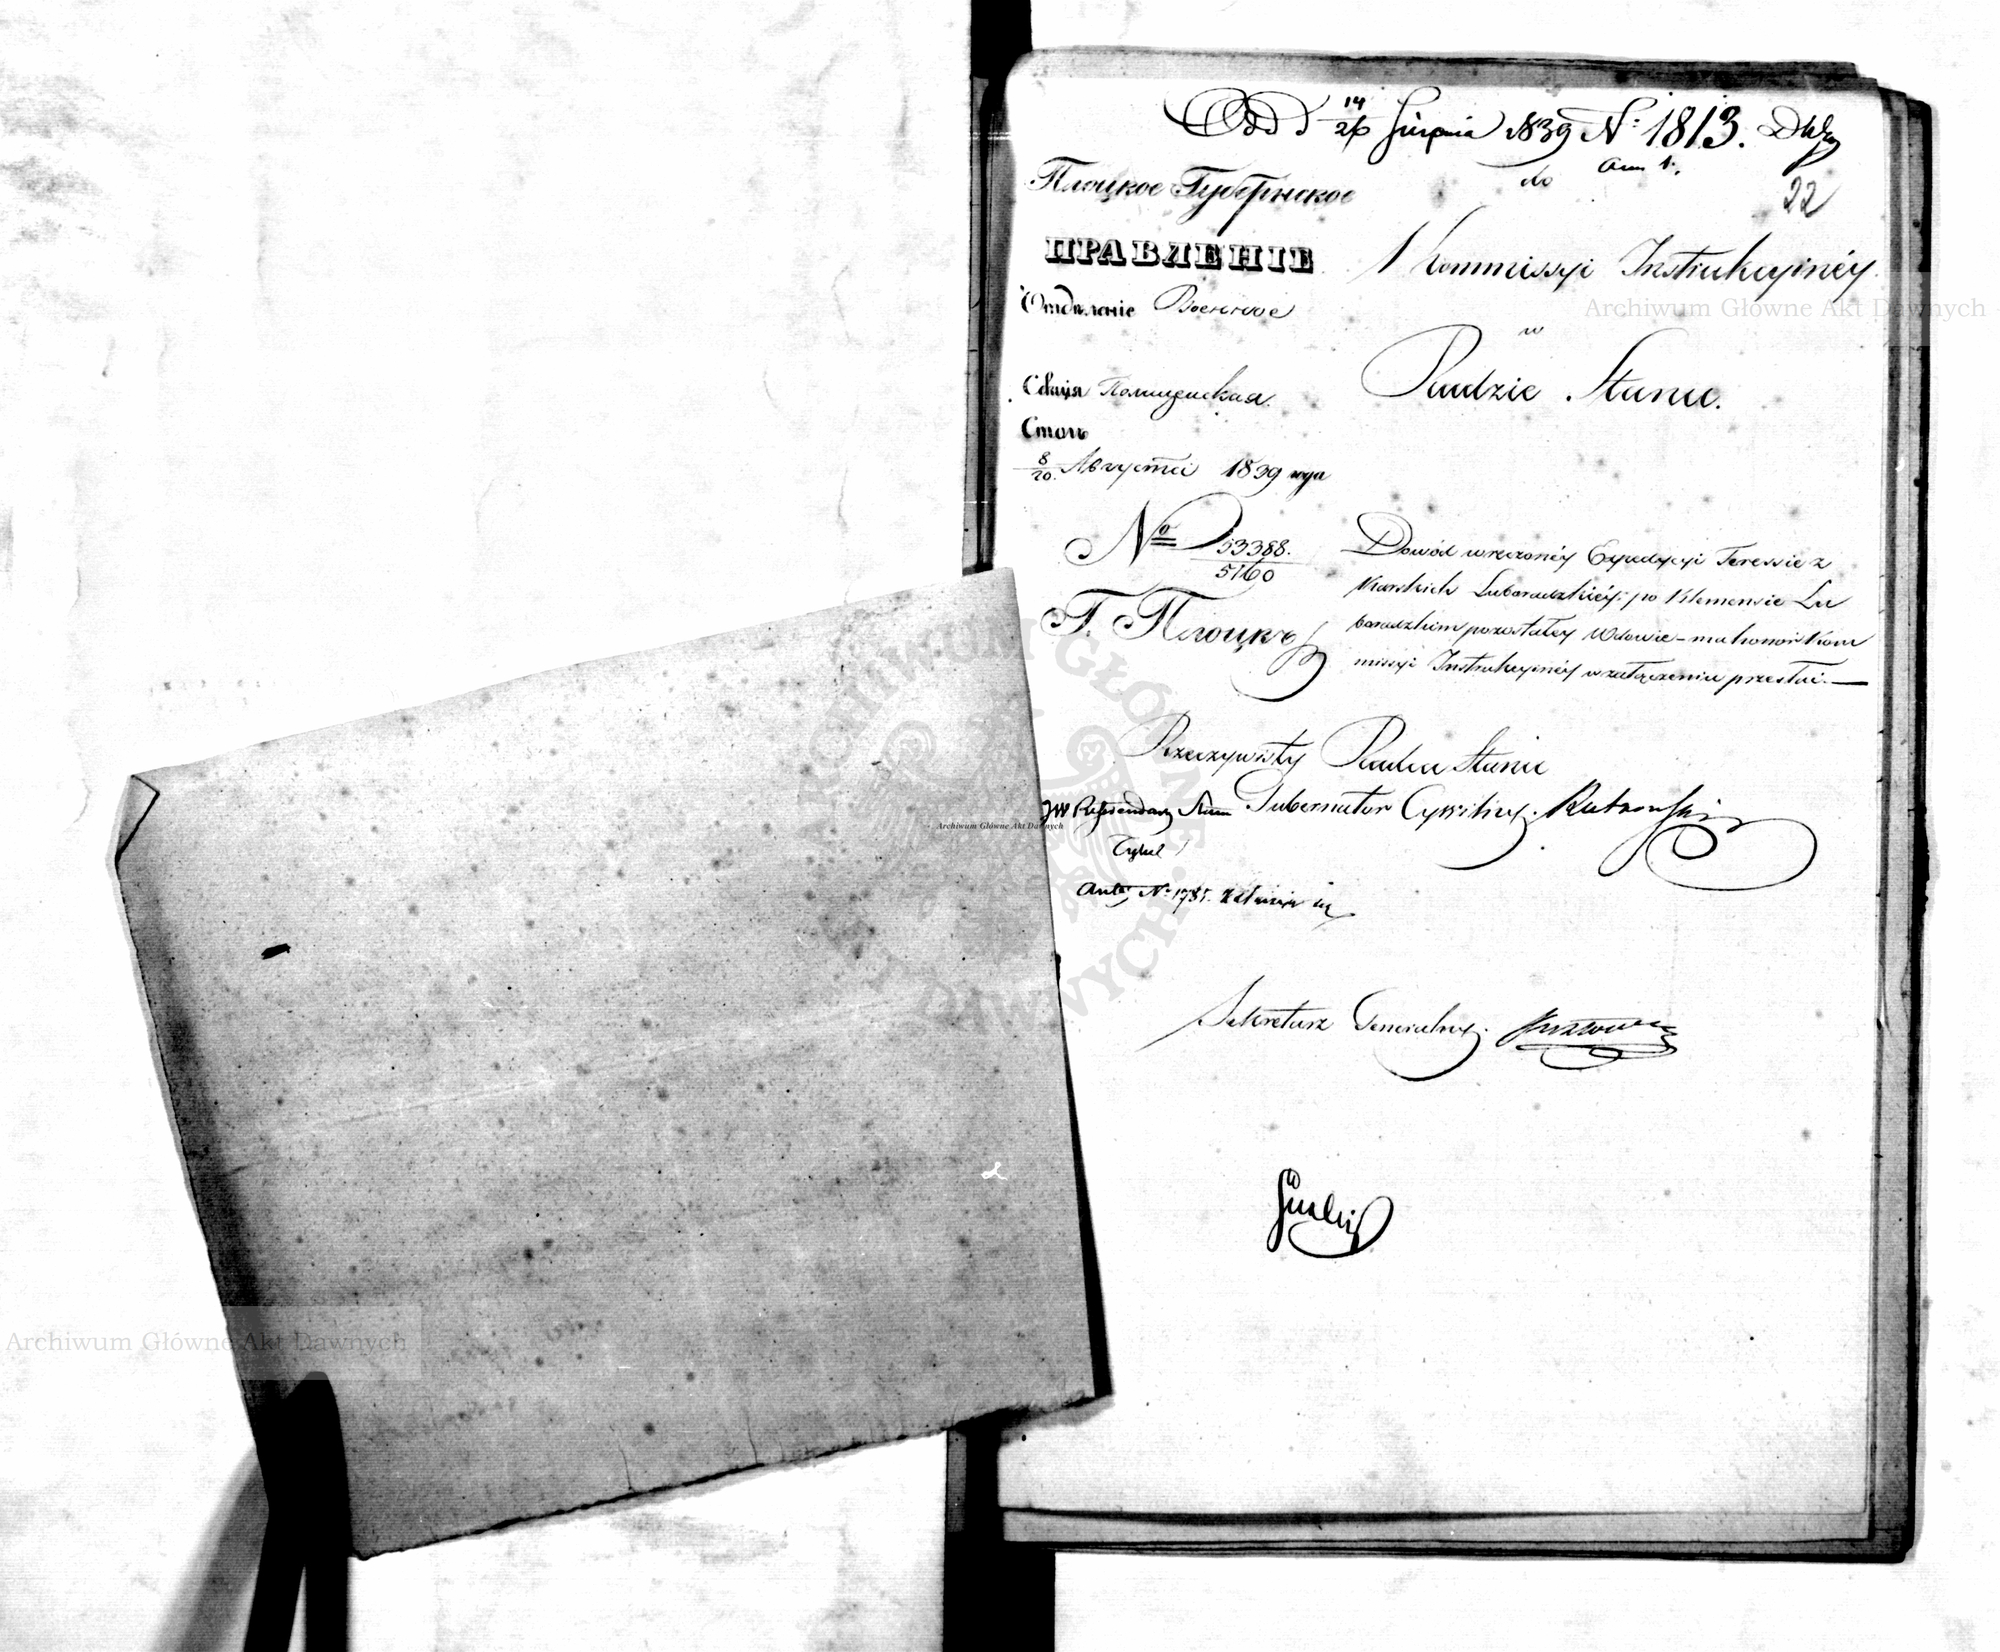 Odd d 14/26 Sierpnia 1839 N: 1813.
ann 1.
22
Плоцкое Губернское
ПРАВЛЕНІЕ
Отдѣленіе Военное
Секція Полицейская.
Столъ
8/20. Августа 1839 года
№ 53388.
5160
Г. Плоцкъ
do
Kommissyi Instrukcyinéy
w
Radzie Stanu.
Dowód wręczonéy Expedycyi Teressie z
Karskich Luboradzkiéy po Klemensie Lu
boradzkim pozostałey Wdowie – ma honor Kom
missyi Instrukcyinéy w załączeniu przesłać. —
Rzeczywisty Radca Stanu
Gubernator Cywilny.
JW Referendarz Stanu
Tykel
N: 1785.
Sekretarz Generalny.
Archiwum Główne Akt Dawnych
Archiwum Główne Akt Dawnych
Archiwum Główne Akt Dawnych
ARCHIWUM GŁÓWNE AKT DAWNYCH